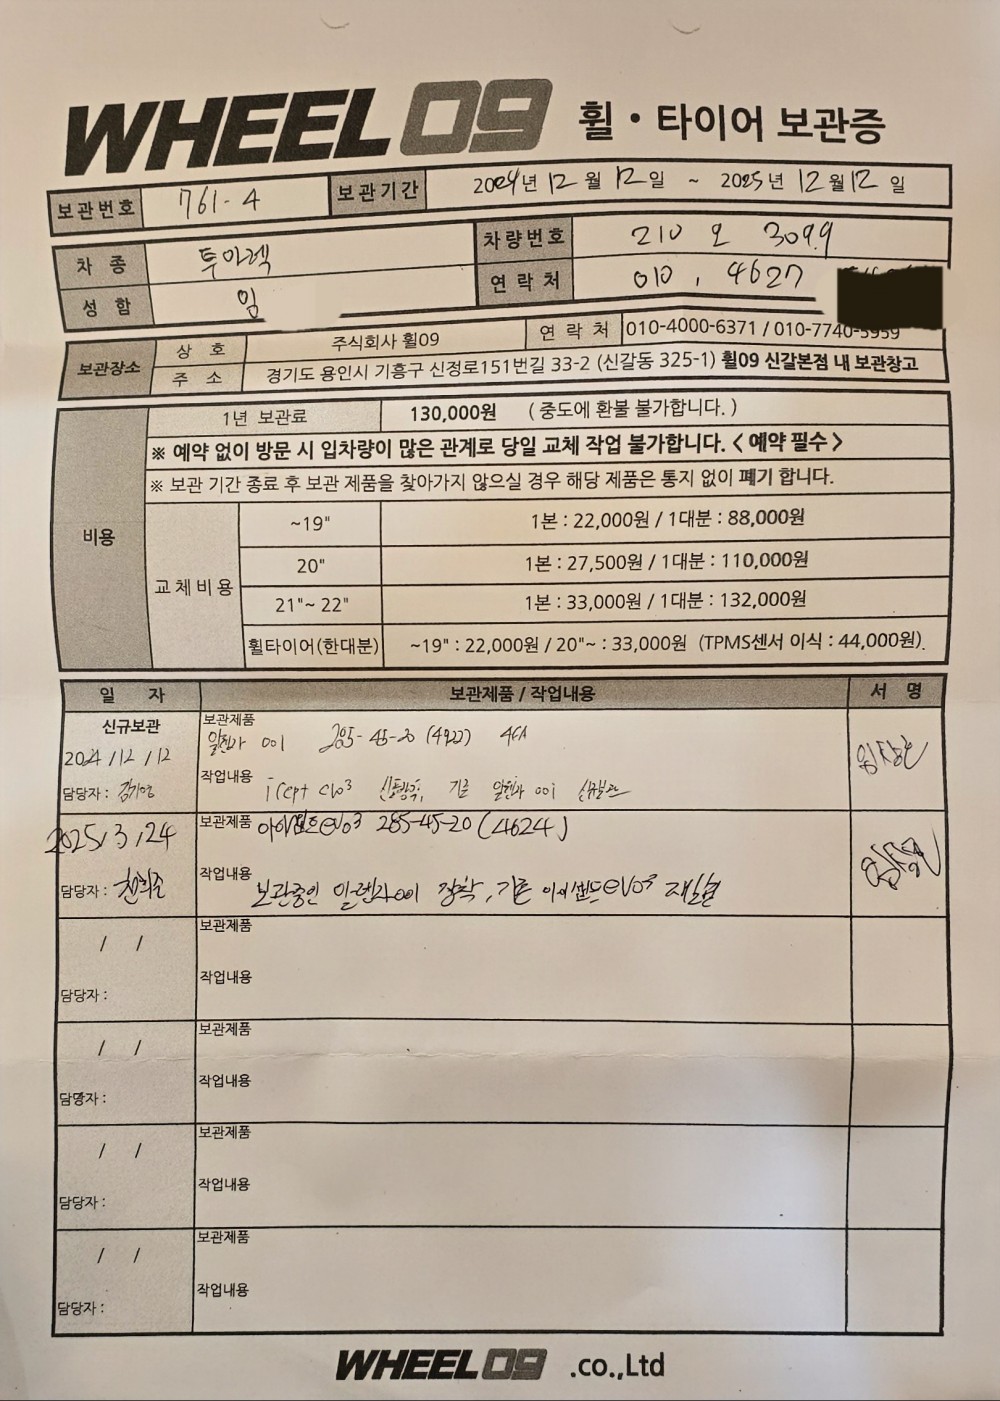 WHEEL09 휠 • 타이어 보관증
보관번호 761-4 보관기간 2024년 12월 12일 ~ 2025년 12월 12일
차 종 투아렉 차량번호 210 오 3099
성 함 임 연 락 처 010 , 4627
보관장소 상 호 주식회사 휠09 연 락 처 010-4000-6371 / 010-7740-5959
주 소 경기도 용인시 기흥구 신정로151번길 33-2 (신갈동 325-1) 휠09 신갈본점 내 보관창고
비용 1년 보관료 130,000원 ( 중도에 환불 불가합니다. )
※ 예약 없이 방문 시 입차량이 많은 관계로 당일 교체 작업 불가합니다. < 예약 필수 >
※ 보관 기간 종료 후 보관 제품을 찾아가지 않으실 경우 해당 제품은 통지 없이 폐기 합니다.
교체비용 ~19" 1본 : 22,000원 / 1대분 : 88,000원
20" 1본 : 27,500원 / 1대분 : 110,000원
21"~ 22" 1본 : 33,000원 / 1대분 : 132,000원
휠타이어(한대분) ~19" : 22,000원 / 20"~ : 33,000원 (TPMS센서 이식 : 44,000원).
일 자 보관제품 / 작업내용 서 명
신규보관 보관제품
001 285-45-20 (4922) 4EA
2024 / 12 / 12
담당자 : 작업내용 icept evo3 기존 001
2025 / 3 / 24 보관제품 evo3 285-45-20 (4624)
담당자 : 작업내용 보관중인 001 장착, 기존 evo3
/ / 보관제품
담당자 : 작업내용
/ / 보관제품
담당자 : 작업내용
/ / 보관제품
담당자 : 작업내용
/ / 보관제품
담당자 : 작업내용
WHEEL09 .co.,Ltd